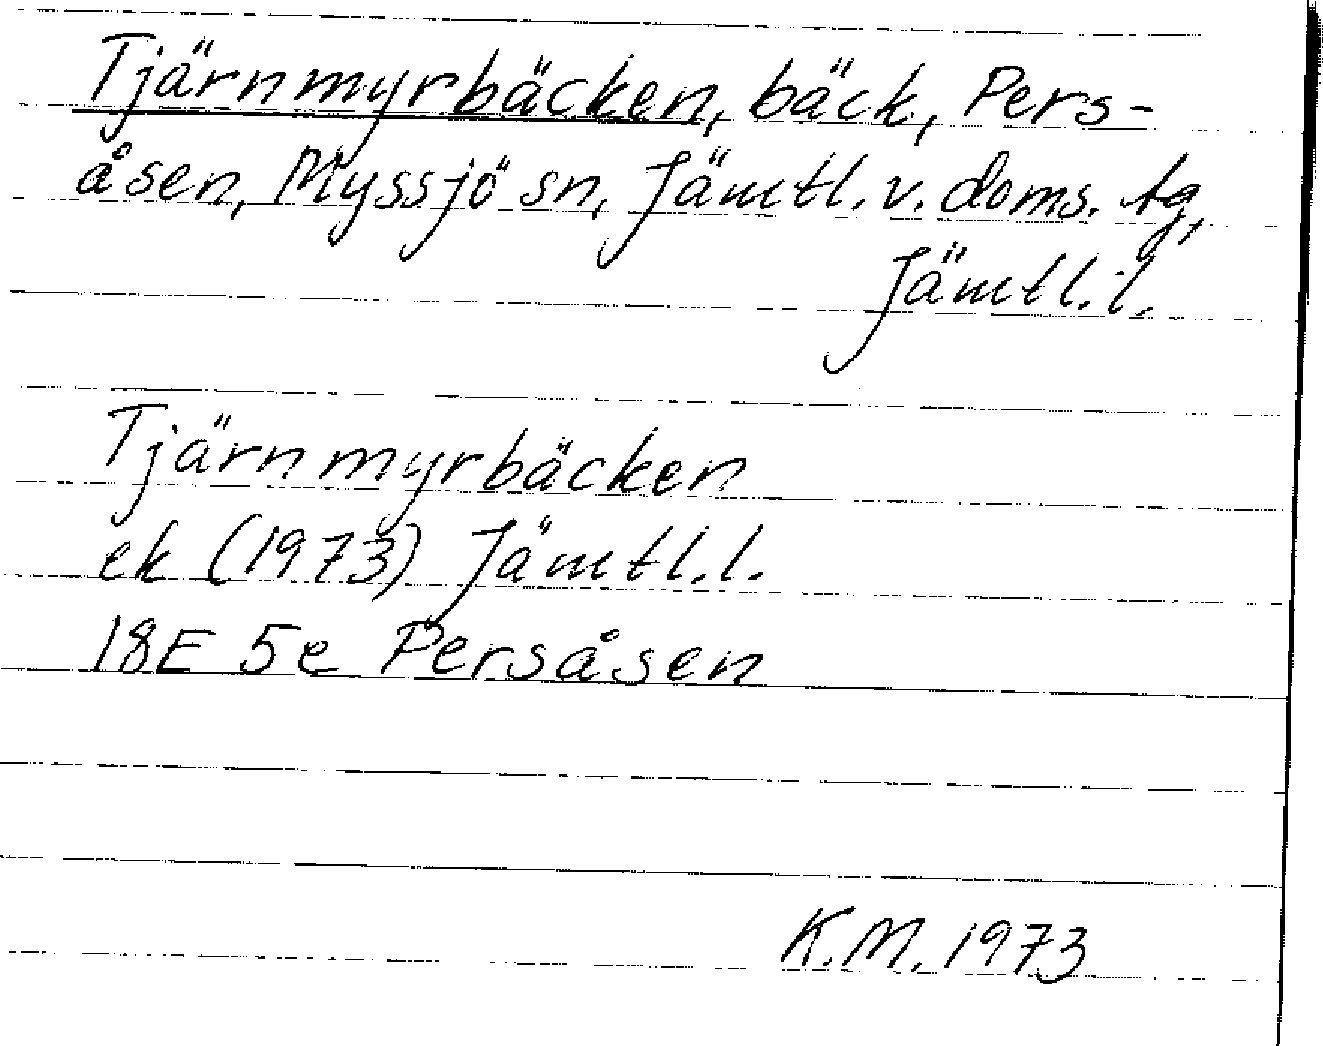 Tjärnmyrbäcken, bäck, Pers-
åsen, Myssjö sn, Jämtl. v. doms. tg,
Jämtl. l.
Tjärnmyrbäcken
ek (1973) Jämtl. l.
18E 5e Persåsen
K.M. 1973